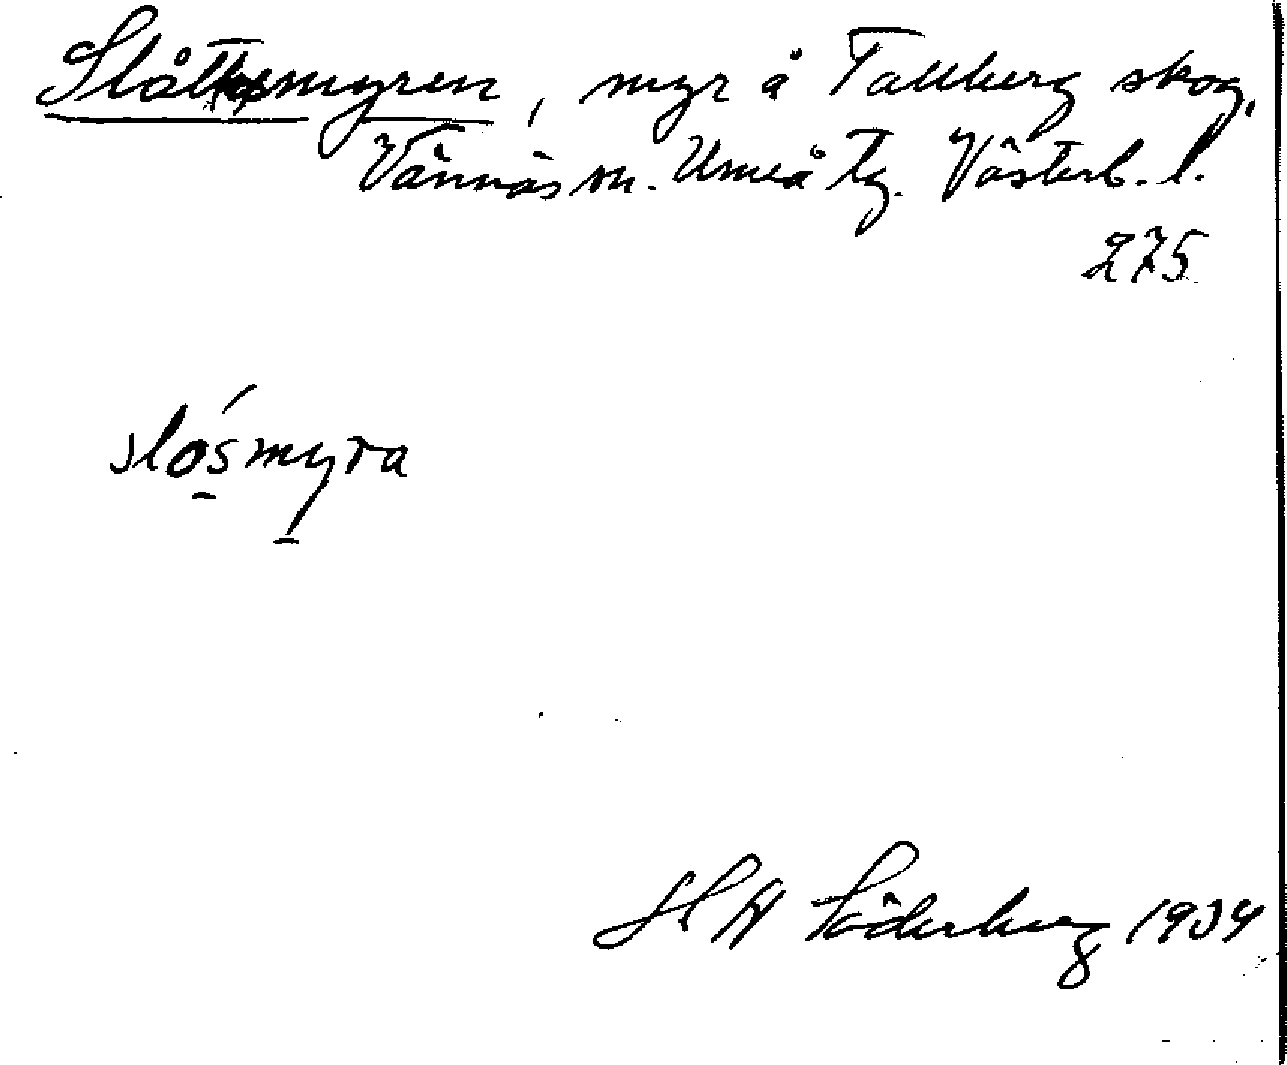 Slåttmyren, myr å Tallberg skog,
Vännäs sn. Umeå tg. Västerb. l.
275
slósmyra
H W Söderberg 1934